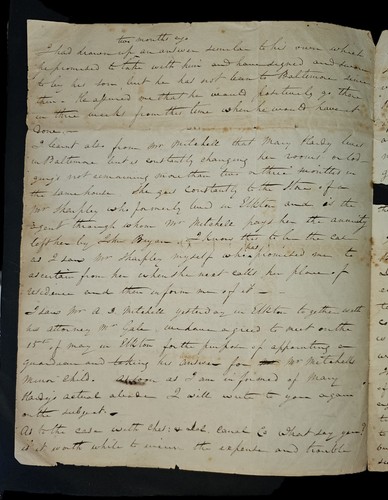 two months ago
I had drawn up an answer similar to his own which
he promised to take with him and have signed and sworn
to by his son, but he has not been to Baltimore since
then. He assured me that he would positively go there
in three weeks from this time when he would have it
done, —
I learnt also from Mr Mitchell that Mary Hardy lives
in Baltimore but is constantly changing her rooms or lod
gings not remaining more than two or three months in
the same house She goes constantly to the Store of a
Mr Sharpley who formerly lived in Elkton and is the
agent through whom Mr Mitchell pays her the annuity
left her by John Bryan — I know this to be the case
as I saw Mr Sharpley myself who has promised me to
ascertain from her when she next calls her place of
residence and then inform me of it —
I saw Mr A D Mitchell yesterday in Elkton together with
his attorney Mr Gale, we have agreed to meet on the
15th of May in Elkton for the purpose of appointing a
guardian and taking his answer for Mr Mitchells
Minor Child. As soon as I am informed of Mary
Hardys actual abode I will write to you again
on the subject. —
As to the case with Ches: & Del Canal Co what say you?
Is it worth while to incur the expense and trouble